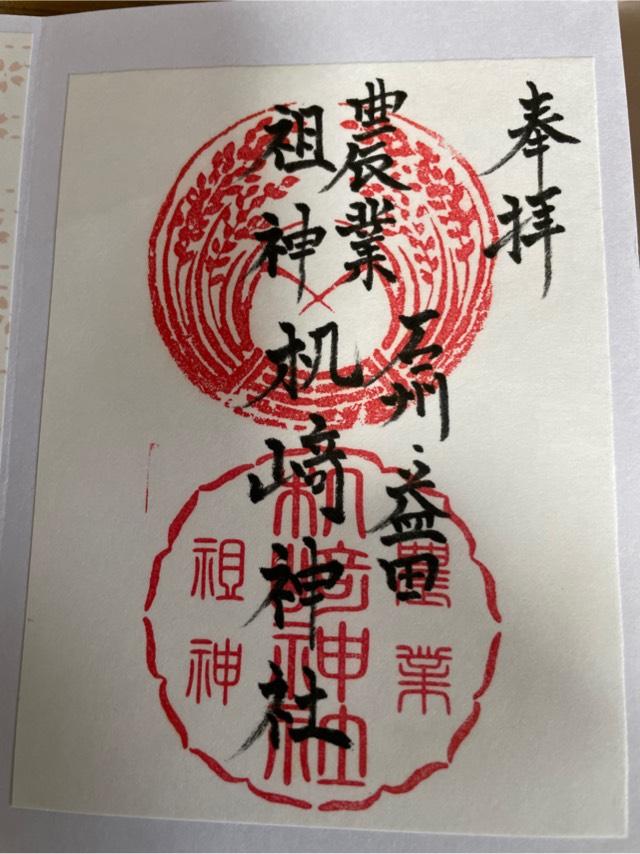 奉拝
農業
石州・益田
祖神机崎神社
農業
机崎神社
祖神